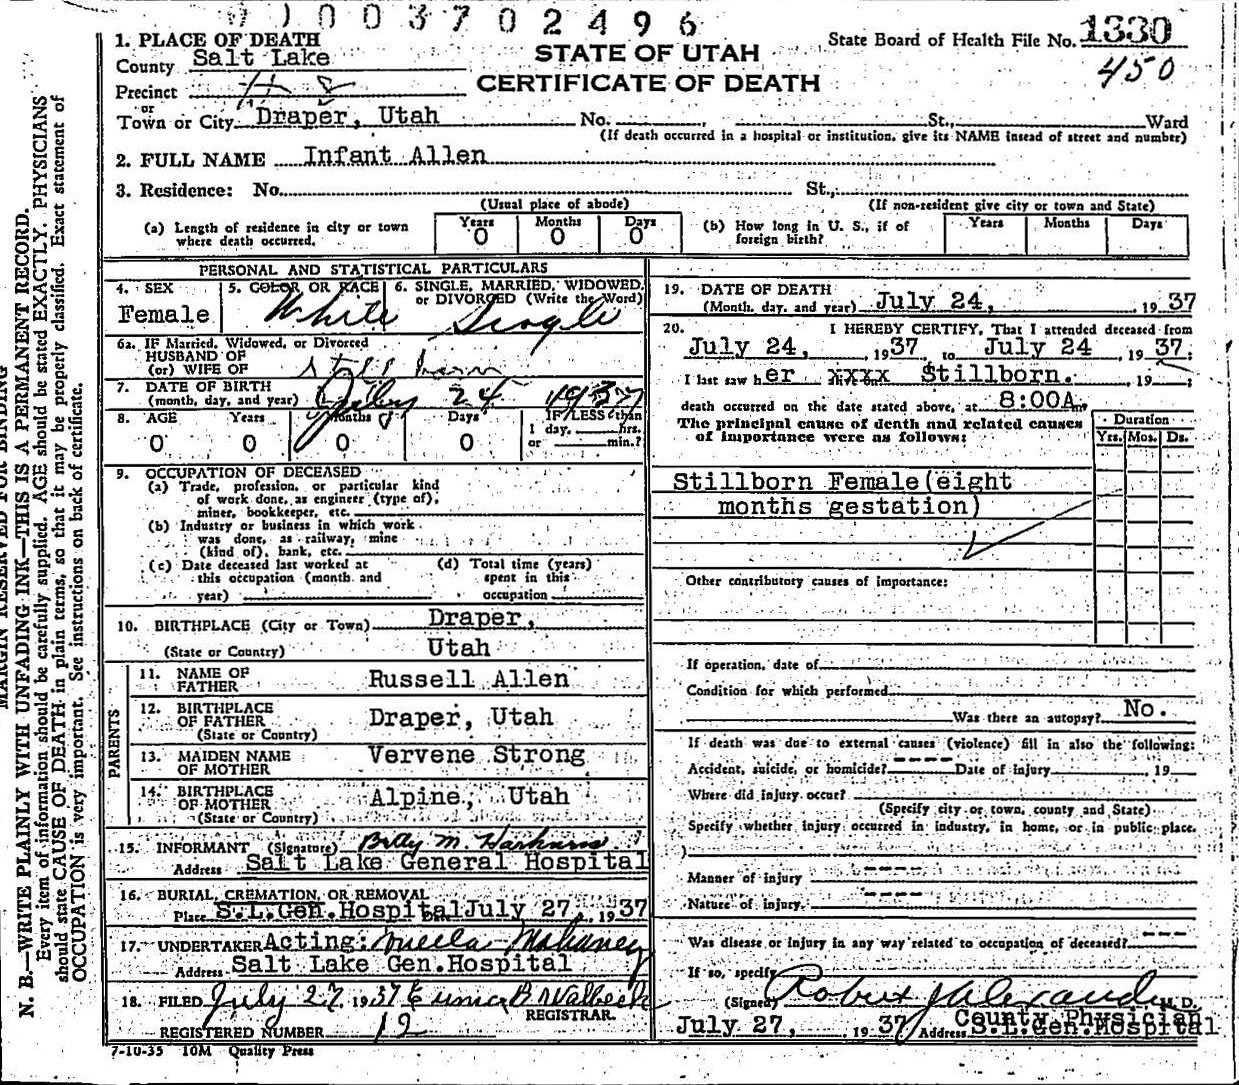 003702496
1. PLACE OF DEATH
STATE OF UTAH
CERTIFICATE OF DEATH
State Board of Health File No. 1330
450
County Salt Lake
Precinct
or
Town or City Draper, Utah No. St., Ward
(If death occurred in a hospital or institution, give its NAME insead of street and number)
2. FULL NAME Infant Allen
3. Residence: No. St.,
(Usual place of abode) (If non-resident give city or town and State)
(a) Length of residence in city or town where death occurred. Years 0 Months 0 Days 0
(b) How long in U. S., if of foreign birth? Years Months Days
PERSONAL AND STATISTICAL PARTICULARS
4. SEX Female
5. COLOR OR RACE White
6. SINGLE, MARRIED, WIDOWED, or DIVORCED (Write the Word) Single
6a. IF Married, Widowed, or Divorced
HUSBAND OF
(or) WIFE OF still born
7. DATE OF BIRTH
(month, day, and year) July 24 1937
8. AGE Years Months Days IF LESS than
0 0 0 0 1 day, hrs.
or min.?
9. OCCUPATION OF DECEASED
(a) Trade, profession, or particular kind
of work done, as engineer (type of),
miner, bookkeeper, etc.
(b) Industry or business in which work
was done, as railway, mine
(kind of), bank, etc.
(c) Date deceased last worked at
this occupation (month and
year)
(d) Total time (years)
spent in this
occupation
10. BIRTHPLACE (City or Town) Draper,
(State or Country) Utah
PARENTS
11. NAME OF FATHER Russell Allen
12. BIRTHPLACE OF FATHER Draper, Utah
(State or Country)
13. MAIDEN NAME OF MOTHER Vervene Strong
14. BIRTHPLACE OF MOTHER Alpine, Utah
(State or Country)
15. INFORMANT (Signature) M.
Address Salt Lake General Hospital
16. BURIAL, CREMATION, OR REMOVAL
Place S.L.Gen.Hospital July 27, 1937
17. UNDERTAKER Acting: Mahaney
Address Salt Lake Gen.Hospital
18. FILED July 27, 1937 Eunice B
REGISTRAR.
REGISTERED NUMBER 12
7-10-35 10M Quality Press
19. DATE OF DEATH
(Month, day, and year) July 24, 1937
20. I HEREBY CERTIFY, That I attended deceased from
July 24, 1937 to July 24, 1937;
I last saw her xxxx Stillborn. 19 ;
death occurred on the date stated above, at 8:00A m.
The principal cause of death and related causes
of importance were as follows:
Duration
Yrs. Mos. Ds.
Stillborn Female(eight
months gestation)
Other contributory causes of importance:
If operation, date of
Condition for which performed
Was there an autopsy? No.
If death was due to external causes (violence) fill in also the following:
Accident, suicide, or homicide? ---- Date of injury , 19
Where did injury occur?
(Specify city or town, county and State)
Specify whether injury occurred in industry, in home, or in public place.
Manner of injury ----
Nature of injury. ----
Was disease or injury in any way related to occupation of deceased? ---
If so, specify
(Signed) Robert J Alexander M. D.
County Physician
July 27, 1937 Address S.L.Gen.Hospital
MARGIN RESERVED FOR BINDING
N. B.—WRITE PLAINLY WITH UNFADING INK—THIS IS A PERMANENT RECORD.
Every item of information should be carefully supplied. AGE should be stated EXACTLY. PHYSICIANS
should state CAUSE OF DEATH in plain terms, so that it may be properly classified. Exact statement of
OCCUPATION is very important. See instructions on back of certificate.